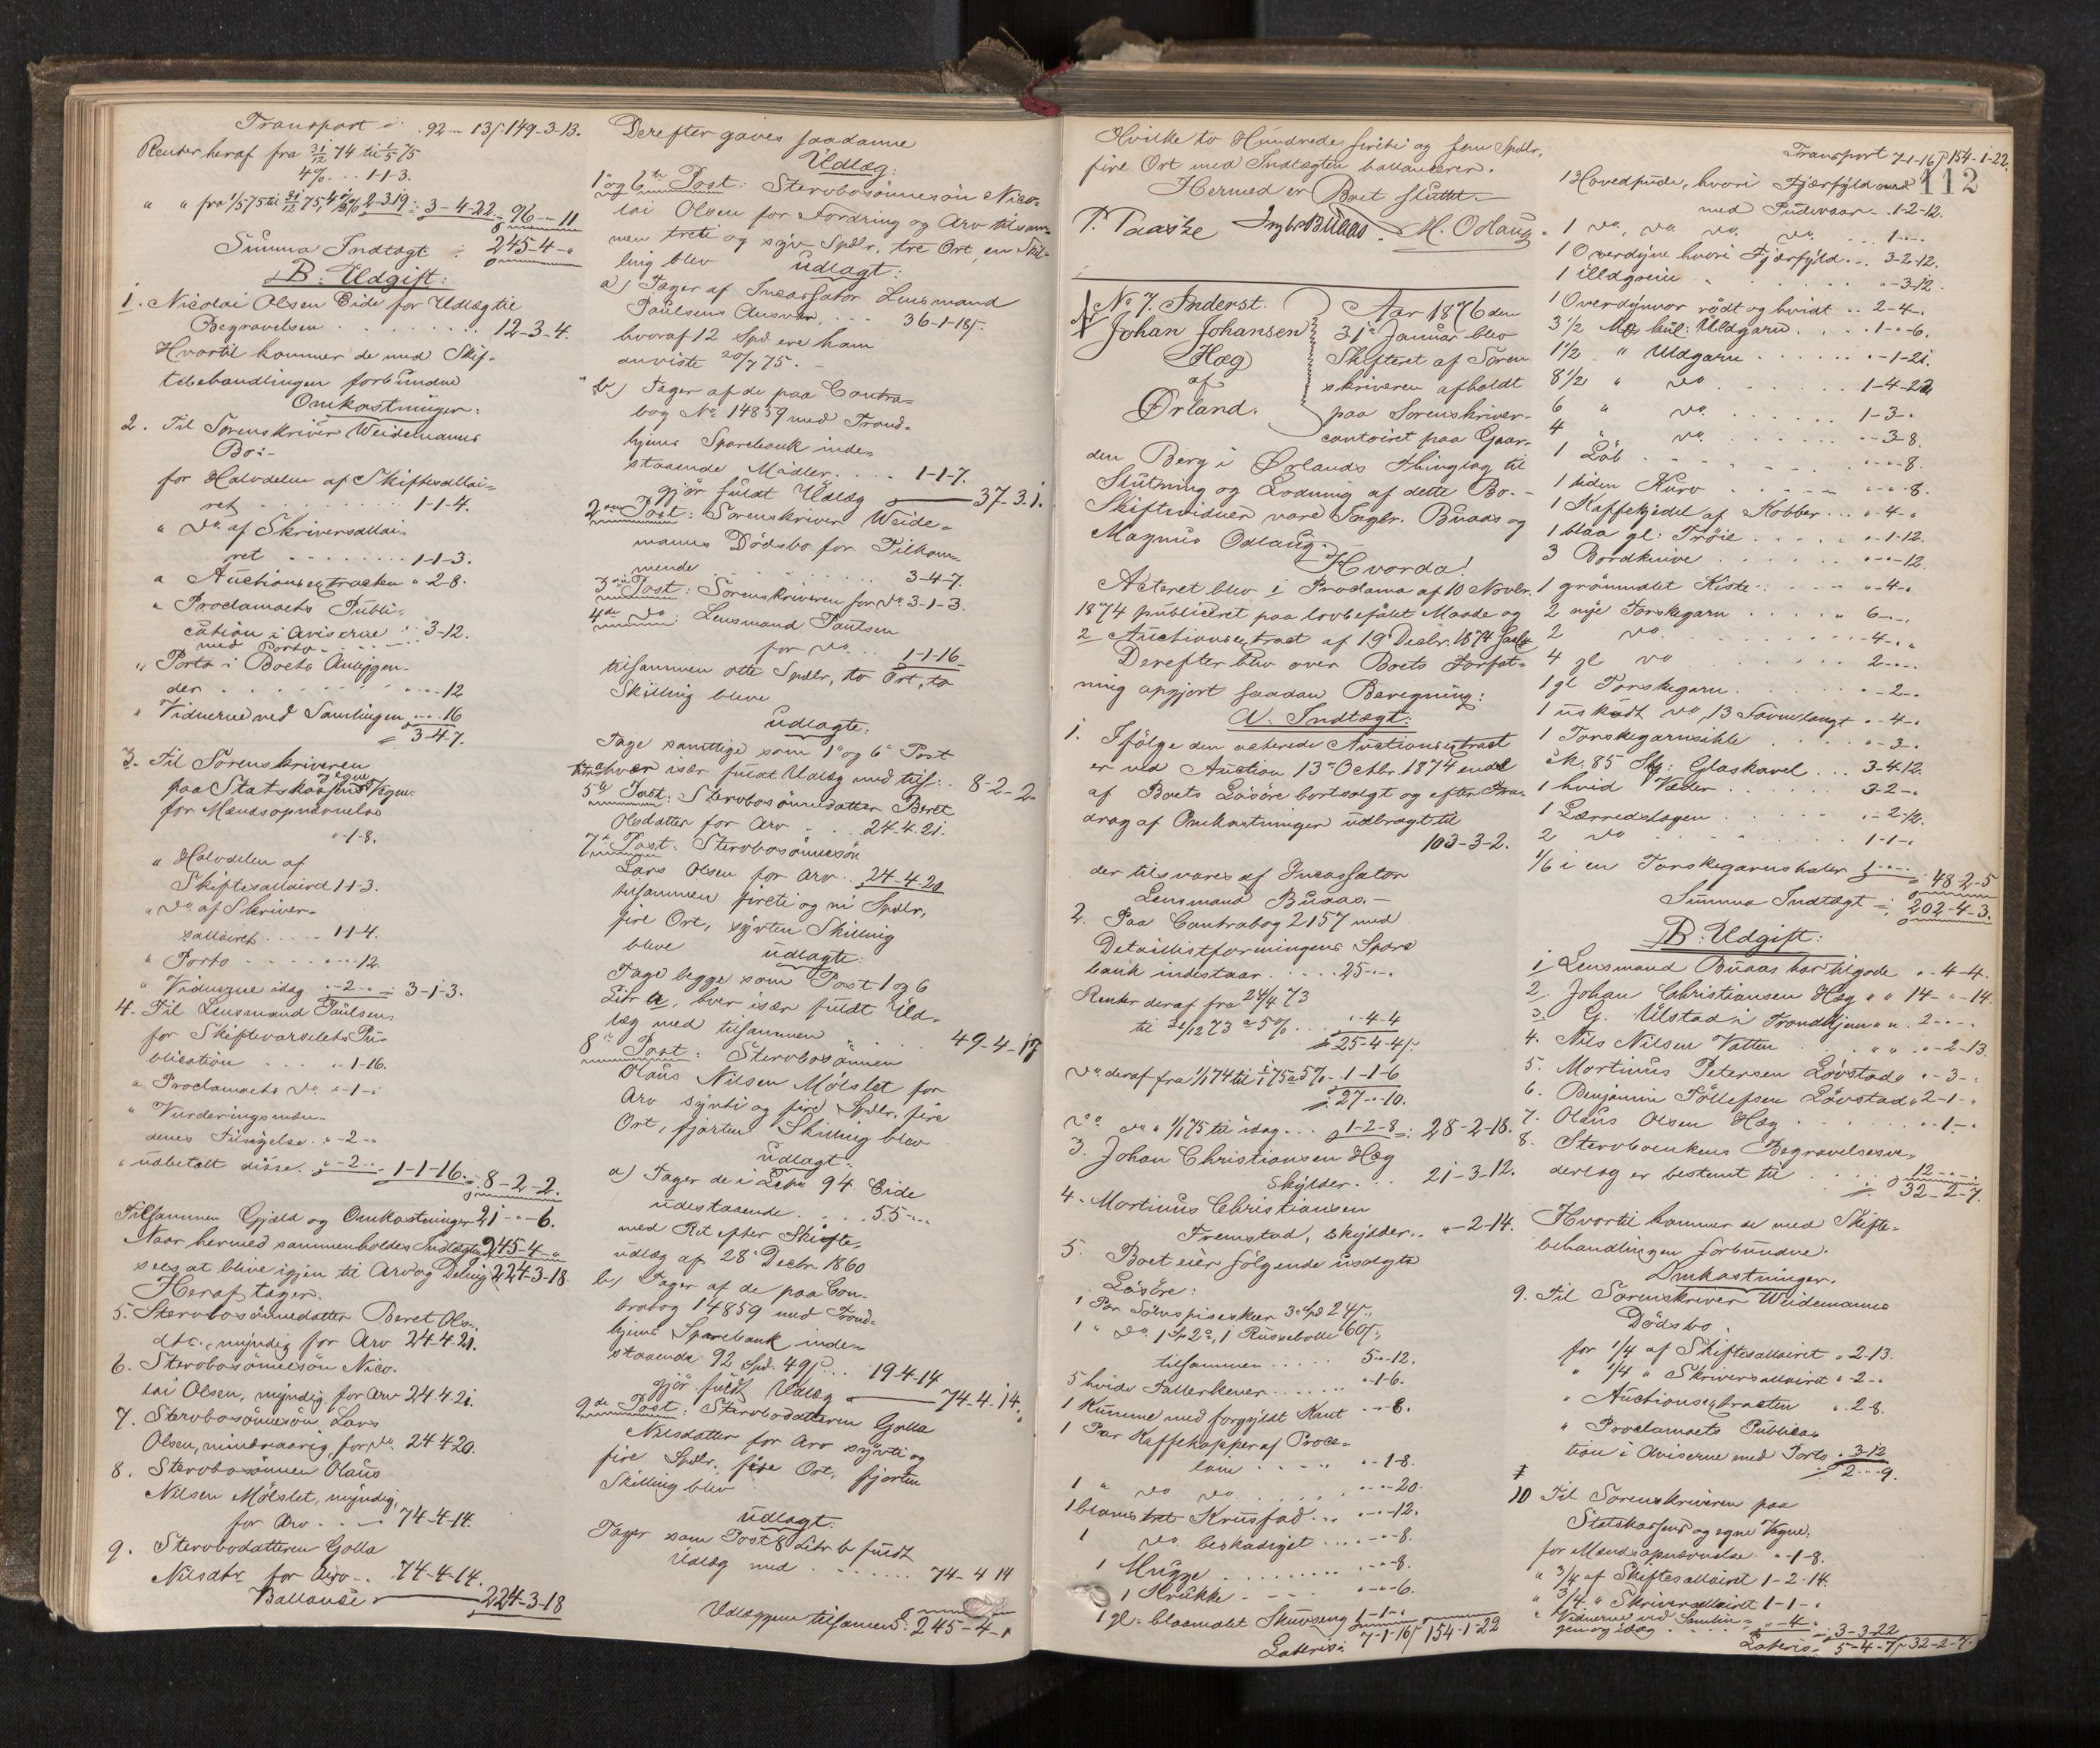 Transport : . 92 - 13ſ. 149-3-13.
Renter heraf fra 31/12 74 til 1/5 75
4% . . . 1-1-3.
" " fra 1/5 75 til 31/12 75, 2-3-19 : 3-4-22 : 96 - " 11
Summa Indtægt : 245-4-"
B. Udgift:
1. Nicolai Olsen Eide for Udlæg til
Begravelsen . . . . . . . . 12-3-4.
Hvortil kommer de med Skif-
tebehandlingen forbundne
Omkostninger:
2. Til Sorenskriver Weidemanns
Bo:-
for Halvdelen af Skiftesallai-
ret . . . . . . . . 1-1-4.
" Do af Skriversallai-
ret . . . . . . . . 1-1-3.
" Auctionsextracten " 2-8.
" Proclamaets Publi-
cation i Aviserne . . 3-12.
med Porto
" Porto i Boets Anliggen-
der . . . . . . . . " - " - 12
" Vidnerne ved Samlingen " - " 16
3-4-7.
3. Til Sorenskriveren
paa Statskassens og egne Vegne.
for Mændsopnævnelse
" -1-8.
" Halvdelen af
Skiftesallairet 1-1-3.
" Do af Skriver-
sallairet . . . . . 1-1-4.
" Porto . . . . . " - " - 12.
" Vidnerne idag " -2-" : 3-1-3.
4. Til Lensmand Paulsen
for Skiftevarselets Pu-
blication . . . " -1-16.
" Proclamaets Do " -1-"
" Vurderingsmæn-
denes Tilsigelse . " -2-"
" udbetalt disse . " -2-" 1-1-16 : 8-2-2.
Tilsammen Gjæld og Omkostninger 21-"-6.
Naar hermed sammenholdes Indtægten 245-4-"
sees at blive igjen til Arv og Deling 224-3-18.
Heraf tager.
5. Stervbosønnedatter Beret Ols-
dtr., myndig for Arv 24-4-21.
6. Stervbosønnesøn Nico-
lai Olsen, myndig, for Arv 24-4-21.
7. Stervbosønnesøn Lars
Olsen, mindreaarig, for Do 24-4-20.
8. Stervbosønnen Olaus
Nilsen Mølslet, myndig,
for Arv . . . 74-4-14.
9. Stervbodatteren Golla
Nilsdtr. for Arv . . 74-4-14.
Ballance 224-3-18
Derefter gaves saadanne
Udlæg:
1ste og 6te Post: Stervbosønnesøn Nico-
lai Olsen for Fordring og Arv tilsam-
men treti og syv Spdlr, tre Ort, en Skil-
ling blev
udlagt:
a) Tager af Incassator Lensmand
Paulsens Ansvar . . . 36-1-18ſ.
hvoraf 12 Spd ere ham
anviste 20/7 75.-
b) Tager af de paa Contra-
bog No 14859 med Trond-
hjems Sparebank inde-
staaende Midler . . . 1-1-7.
gjør fuldt Udlæg 37-3-1.
2den Post: Sorenskriver Weide-
manns Dødsbo for Tilkom-
mende . . . . . . . . 3-4-7.
3die Post: Sorenskriveren for Do 3-1-3.
4de Do: Lensmand Paulsen
for Do . . . 1-1-16
tilsammen otte Spdlr, to Ort, to
Skilling bleve
udlagte:
Tage samttige som 1ste og 6te Post
Litr a hver især fuldt Udlæg med tils. : 8-2-2.
5te Post: Stervbosønnedatter Beret
Olsdatter for Arv . . . 24-4-21.
7de Post: Stervbosønnesøn
Lars Olsen for Arv . . 24-4-20
tilsammen firti og ni Spdlr,
fire Ort, sytten Skilling
bleve
udlagte:
Tage begge som Post 1 og 6
Litr a, hver især fuldt Ud-
læg med tilsammen . . . . . 49-4-17
8de Post: Stervbosønnen
Olaus Nilsen Mølslet for
Arv sytti og fire Spdlr, fire
Ort, fjorten Skilling blev
udlagt:
a) Tager de i 94 Eide
udestaaende . . . . 55-"-"
med Ret efter Skifte-
udlæg af 28de Decbr 1860
b) Tager af de paa Con-
trabog 14859 med Trond-
hjems Sparebank inde-
staaende 92 Spd 49ſ . . . 19-4-14
gjør fuldt Udlæg 74-4-14.
9de Post: Stervbodatteren Golla
Nilsdatter for Arv sytti og
fire Spdlr. fire Ort, fjorten
Skilling blev
udlagt:
Tager som Post 8 Litr b fuldt
Udlæg med . . . . . . . 74-4-14
Udlæggene tilsammen : 245-4-"
Hvilke to Hundrede firti og fem Spdlr,
fire Ort med Indtægten ballancerer.
Hermed er Boet sluttet.
P. Taaske Ingbr. Buaas. M. Odlaug.
No 7. Inderst.
Johan Johansen
Hæg
af
Ørland.
Aar 1876 den
31te Januar blev
Skifteret af Soren-
skriveren afholdt
paa Sorenskriver-
contoiret paa Gaar-
den Berg i Ørlands Thinglag til
Slutning og Lodning af dette Bo.-
Skiftevidner vare Ingbr. Buaas og
Magnus Odlaug.
Hvorda!
Acteret blev 1 Proclama af 10 Novbr.
1874 publiceret paa lovbefalet Maade og
2 Auctionsextract af 19 Decbr. 1874
Derefter blev over Boets Forfat-
ning opgjort saadan Beregning:
A. Indtægt:
1. Ifølge den acterede Auctionsextract
er ved Auction 13de Octbr. 1874 endel
af Boets Løsøre bortsolgt og efter Fra-
drag af Omkostninger udbragt til
103-3-2.
der tilsvares af Incassator
Lensmand Buaas.-
2. Paa Contrabog 2157 med
Detaillistforeningens Spare
bank indestaar . . . . . 25-"-"
Renter deraf fra 24/4 73
til 31/12 73 a 5% . . . " -4-4
25-4-4ſ.
Do deraf fra 1/1 74 til 1/1 75 a 5% . . 1-1-6
27-"-10.
Do Do " 1/1 75 til idag . . . 1-2-8 : 28-2-18.
3. Johan Christiansen Hæg
skylder . . . 21-3-12.
4. Martinus Christiansen
Fremstad, skylder . . " -2-14.
5. Boet eier følgende usolgte
Løsøre:
1 Par Sølvspiseskeer 3 Spd 24ſ.,
1 " Do 1 Sp 2o, 1 Russebolle 60ſ.,
tilsammen . . . . . 5-"-12.
5 hvide Tallerkener . . . . . . . " -1-6.
1 Kumme med forgyldt Kant " - " - 8.
1 Par Kaffekopper af Proce-
lain . . . . . " -1-8.
1 " Do Do . . . . . . " - " - 20.
1 blaamalet Krusfad . . . " - " - 12.
1 Do. beskadiget . . . . " - " - 8.
1 Mugge . . . . . . . . " - " - 8.
1 Krukke . . . . " - " - 6.
1 gl. blaamalet Skuvseng 1-1-"
Lateris: 7-1-16ſ 154-1-22
Transport 7-1-16ſ 154-1-22.
112
1 Hovedpude, hvori Fjærfyld med
med Pudevaar . . 1-2-12.
1 Do, Do Do Do . . . 1-"-"
1 Overdyne hvori Fjærfyld . . . 3-2-12.
1 . . . . . . " -3-12.
1 Overdynvor rødt og hvidt . . 2-4-"
3 1/2 hvl: Uldgarn . . . . . 1-"-6.
1 1/2 " Uldgarn . . . . . . . " -1-21.
8 1/2 " Do . . . . . . . 1-4-22
6 " Do. . . . . . . . 1-3-"
4 " Do. . . . . . . . " -3-8.
1 Løb . . . . . . . . " - " - 8.
1 liden Kurv . . . . . . . " - " - 8.
1 Kaffekjedel af Kobber . . . " -4-"
1 blaa gl: Trøie . . . . . . " -1-12.
3 Bordknive . . . . . . . " - " - 12.
1 grønmalet Kiste . . . . . . " -4-"
2 nye Torskegarn . . . . . 6-"-"
2 Do. . . . . . . . . 4-"-"
4 gl Do . . . . . . . 2-"-"
1 gl Torskegarn . . . . . . . " -2-"
1 uskødt Do, 13 Favne langt " -4-"
1 Torskegarnsihle . . . . . . " -3-"
ck. 85 Stk: Glaskavel . . . 3-4-12.
1 hvid Væder . . . . . . . 3-2-"
1 Lærredslagen . . . . . . . " -2-12.
2 Do . . . . . . . . 1-1-"
1/6 i en Torskegarnshaler 1-"-" : 48-2-5
Summa Indtægt : 202-4-3.
B: Udgift:
1. Lensmand Buaas har tilgode " -4-4.
2. Johan Christiansen Hæg " " 14-"-14.
3. G. Ulstad i Trondhjem " " . 2-"-"
4. Nils Nilsen Vatten . . " " " -2-13.
5. Martinus Petersen Løvstad " -3-"
6. Benjamin Tøllefsen Løvstad " 2-1-"
7. Olaus Olsen Hæg . . . . . . " -1-"
8. Stervboenkens Begravelsesve-
derlag er bestemt til . . . . 12-"-"
32-2-7.
Hvortil kommer de med Skifte-
behandlingen forbundne.
Omkostninger.
9. Til Sorenskriver Weidemanns
Dødsbo.
for 1/4 af Skiftesallairet " 2-13.
" 1/4 " Skriversallairet " -2-"
" Auctionsextracten " . 2-8.
" Proclamaets Publica-
tion i Aviserne med Porto . 3-12
2-"-9.
10 Til Sorenskriveren paa
Statskassens og egne Vegne.
for Mændsopnævnelse " -1-8.
" 3/4 af Skiftesallairet 1-2-14.
" 3/4 " Skriversallairet 1-1-"
" Vidnerne ved Samlin-
gen og idag . . . . . " -4-" : 3-3-22
Lateris: 5-4-7ſ 32-2-7.